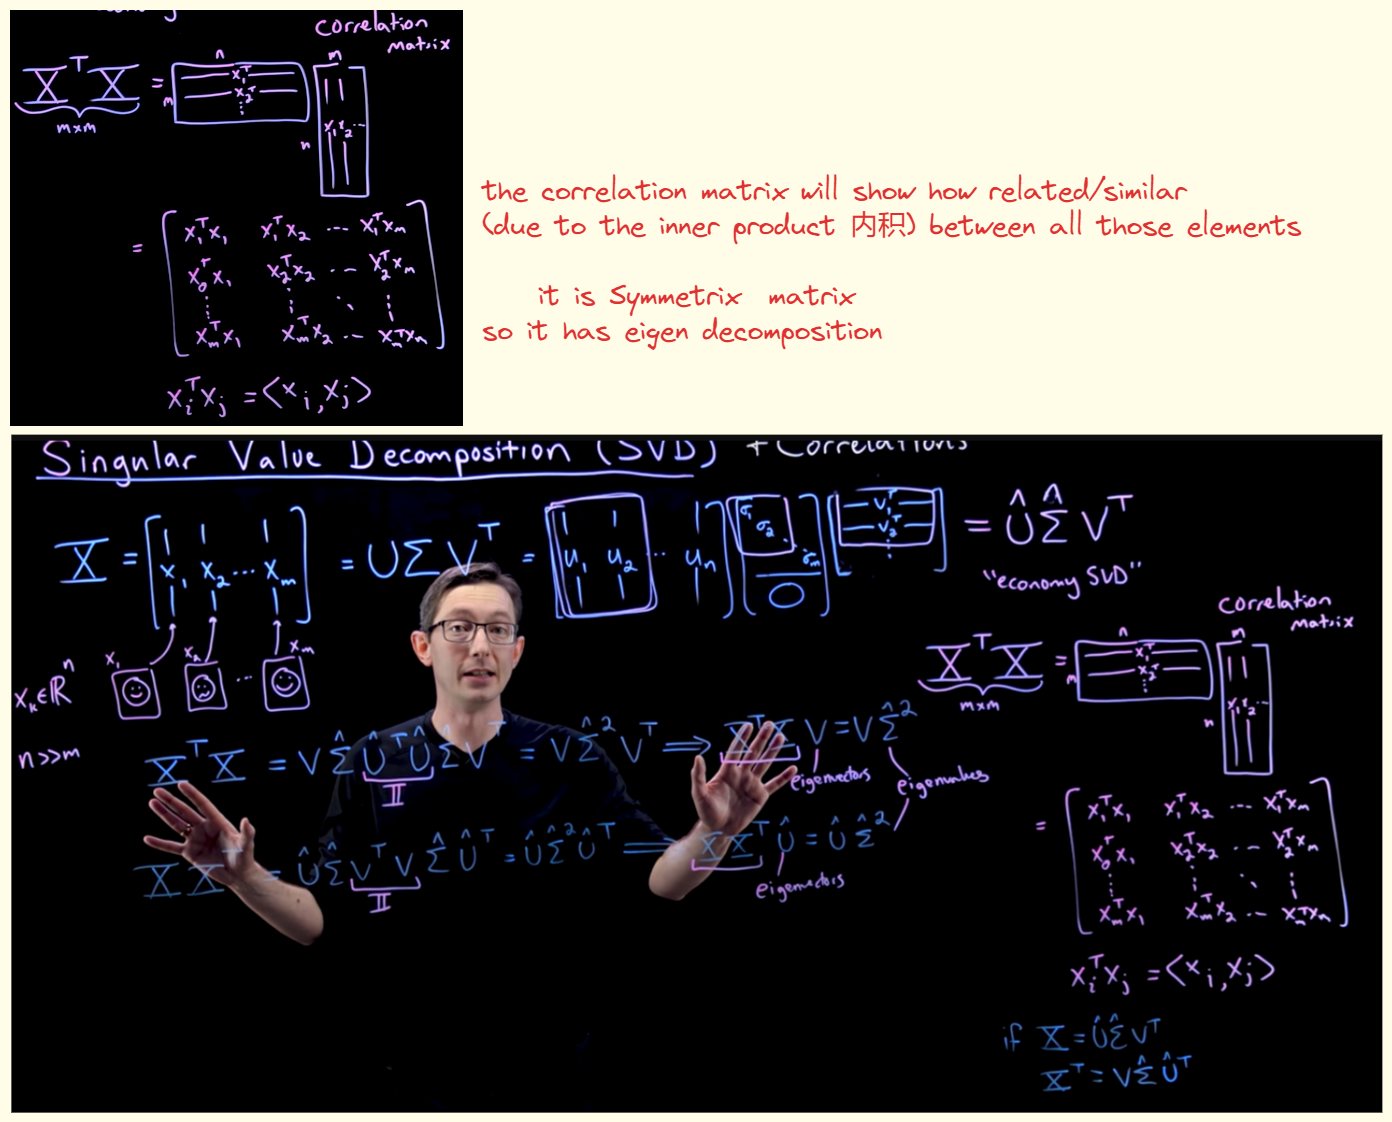 Correlation
matrix
XᵀX =
n
m
x₁ᵀ
x₂ᵀ
⋮
m
x₁ x₂ ⋯
n
m×m
= [ x₁ᵀx₁ x₁ᵀx₂ ⋯ x₁ᵀxₘ
x₂ᵀx₁ x₂ᵀx₂ ⋯ x₂ᵀxₘ
⋮ ⋮ ⋱ ⋮
xₘᵀx₁ xₘᵀx₂ ⋯ xₘᵀxₘ ]
xᵢᵀxⱼ = ⟨xᵢ, xⱼ⟩
the correlation matrix will show how related/similar
(due to the inner product 内积) between all those elements
it is Symmetrix matrix
so it has eigen decomposition
Singular Value Decomposition (SVD) + Correlations
X = [x₁ x₂ ⋯ xₘ] = UΣVᵀ = [u₁ u₂ ⋯ uₙ] [σ₁ σ₂ ⋱ σₘ 0] [v₁ᵀ v₂ᵀ ⋮] = ÛΣ̂Vᵀ
"economy SVD"
x₁ x₂ ⋯ xₘ
xₖ∈ℝⁿ
n>>m
XᵀX = VΣ̂ÛᵀÛΣ̂Vᵀ = VΣ̂²Vᵀ ⟹ XᵀX V = VΣ̂²
II
eigenvectors
eigenvalues
XXᵀ = ÛΣ̂VᵀVΣ̂Ûᵀ = ÛΣ̂²Ûᵀ ⟹ XXᵀÛ = ÛΣ̂²
II
eigenvectors
Correlation
matrix
XᵀX =
n
m
x₁ᵀ
x₂ᵀ
⋮
m
x₁ x₂ ⋯
n
m×m
= [ x₁ᵀx₁ x₁ᵀx₂ ⋯ x₁ᵀxₘ
x₂ᵀx₁ x₂ᵀx₂ ⋯ x₂ᵀxₘ
⋮ ⋮ ⋱ ⋮
xₘᵀx₁ xₘᵀx₂ ⋯ xₘᵀxₘ ]
xᵢᵀxⱼ = ⟨xᵢ, xⱼ⟩
if X = ÛΣ̂Vᵀ
Xᵀ = VΣ̂Ûᵀ